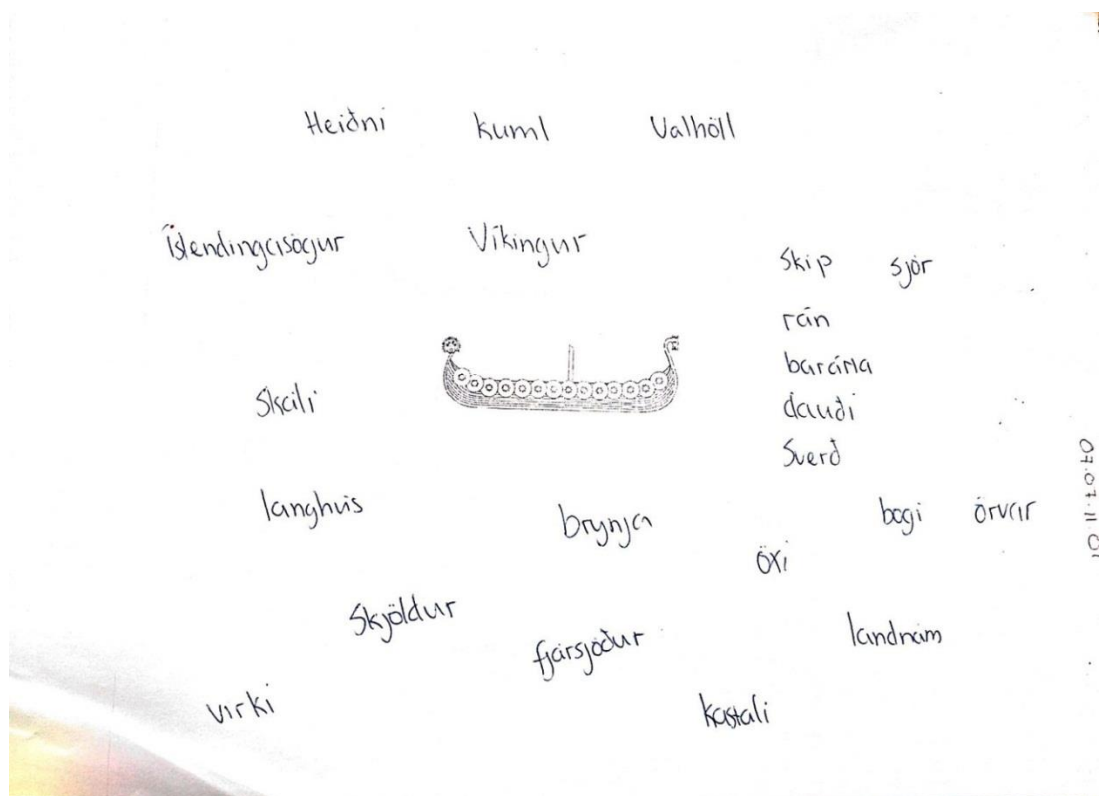 Heiðni kuml Valhöll
Íslendingasögur Víkingur
Skip sjór
rán
barátta
dauði
Sverð
Skáli
langhús
brynja
bogi örvar
öxi
Skjöldur
fjársjóður
landnám
virki
kastali
07.07.11.01